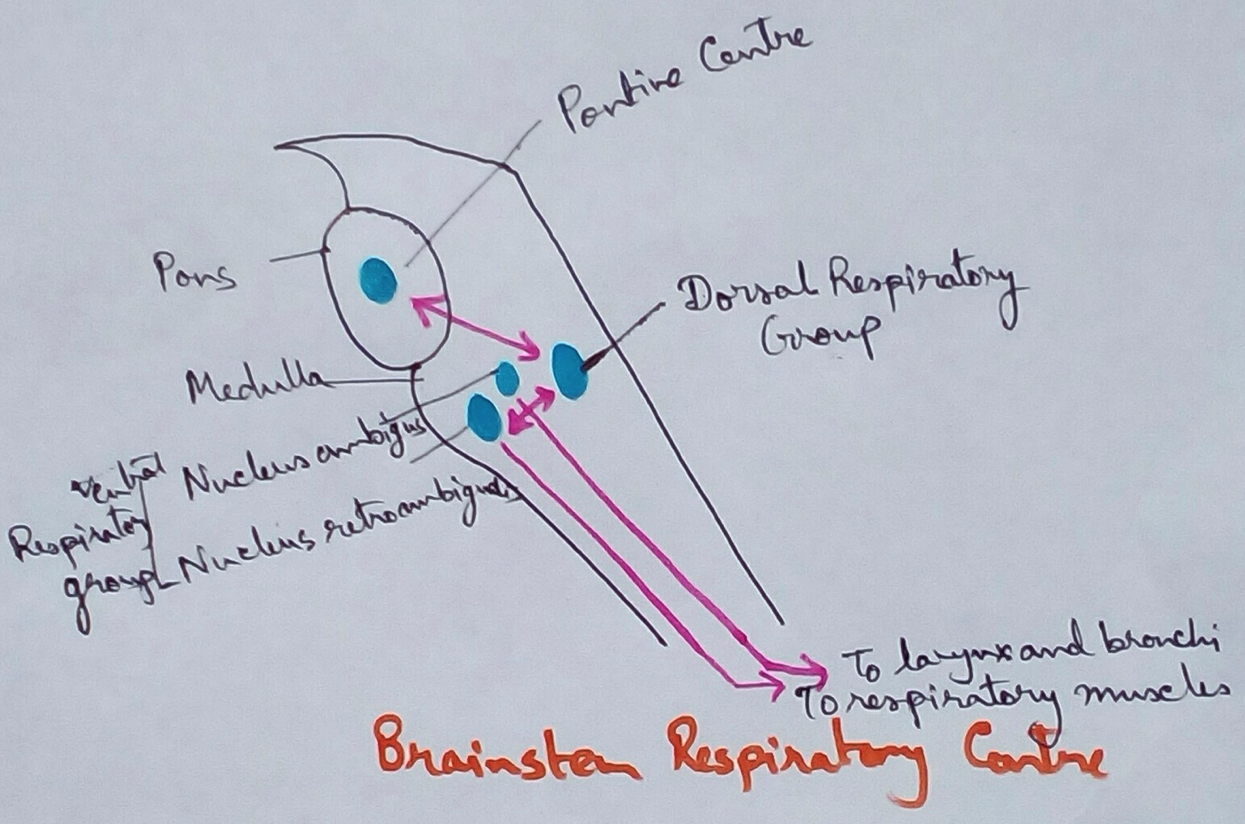 Pontine Centre
Pons
Dorsal Respiratory
Group
Medulla
Nucleus ambigus
Ventral
Respiratory
group
Nucleus retroambigualis
To larynx and bronchi
To respiratory muscles
Brainstem Respiratory Centre